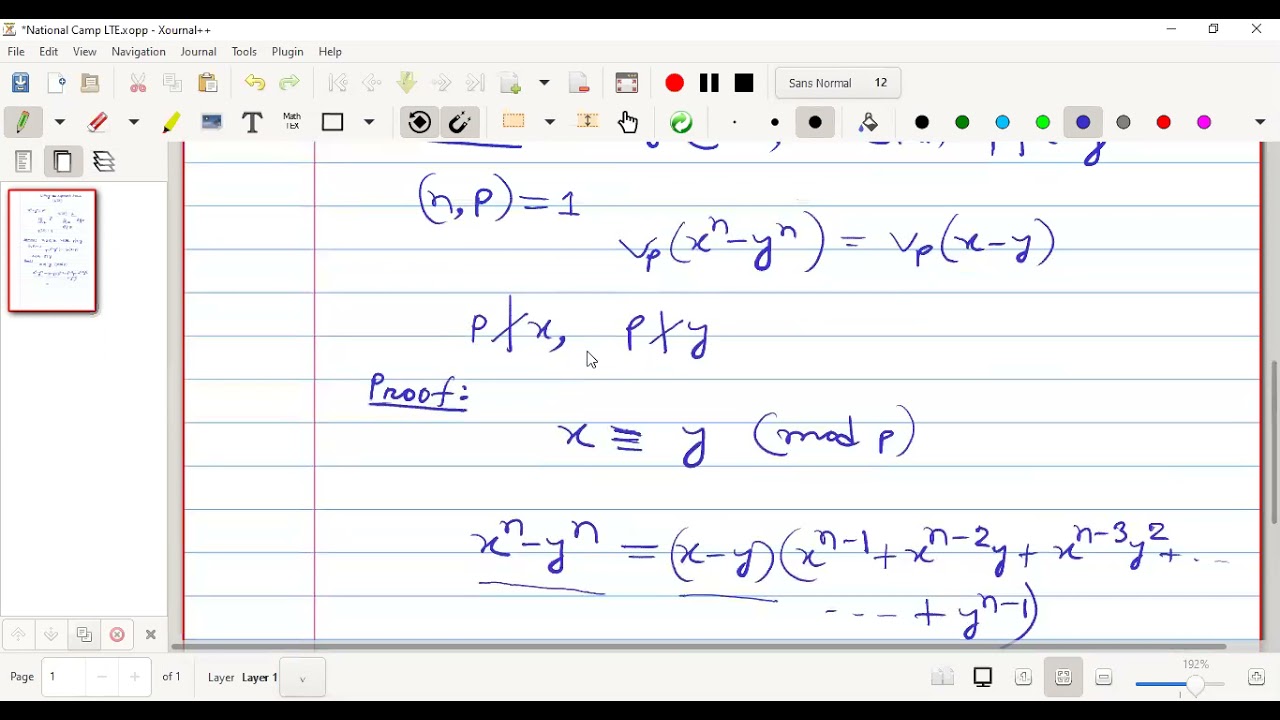 *National Camp LTE.xopp - Xournal++
File Edit View Navigation Journal Tools Plugin Help
Sans Normal 12
T Math TEX
(n, p) = 1
vₚ(xⁿ - yⁿ) = vₚ(x - y)
p ∤ x, p ∤ y
Proof:
x ≡ y (mod p)
xⁿ - yⁿ = (x - y)(xⁿ⁻¹ + xⁿ⁻²y + xⁿ⁻³y² + ...
... + yⁿ⁻¹)
Page 1 of 1 Layer Layer 1 v 192%